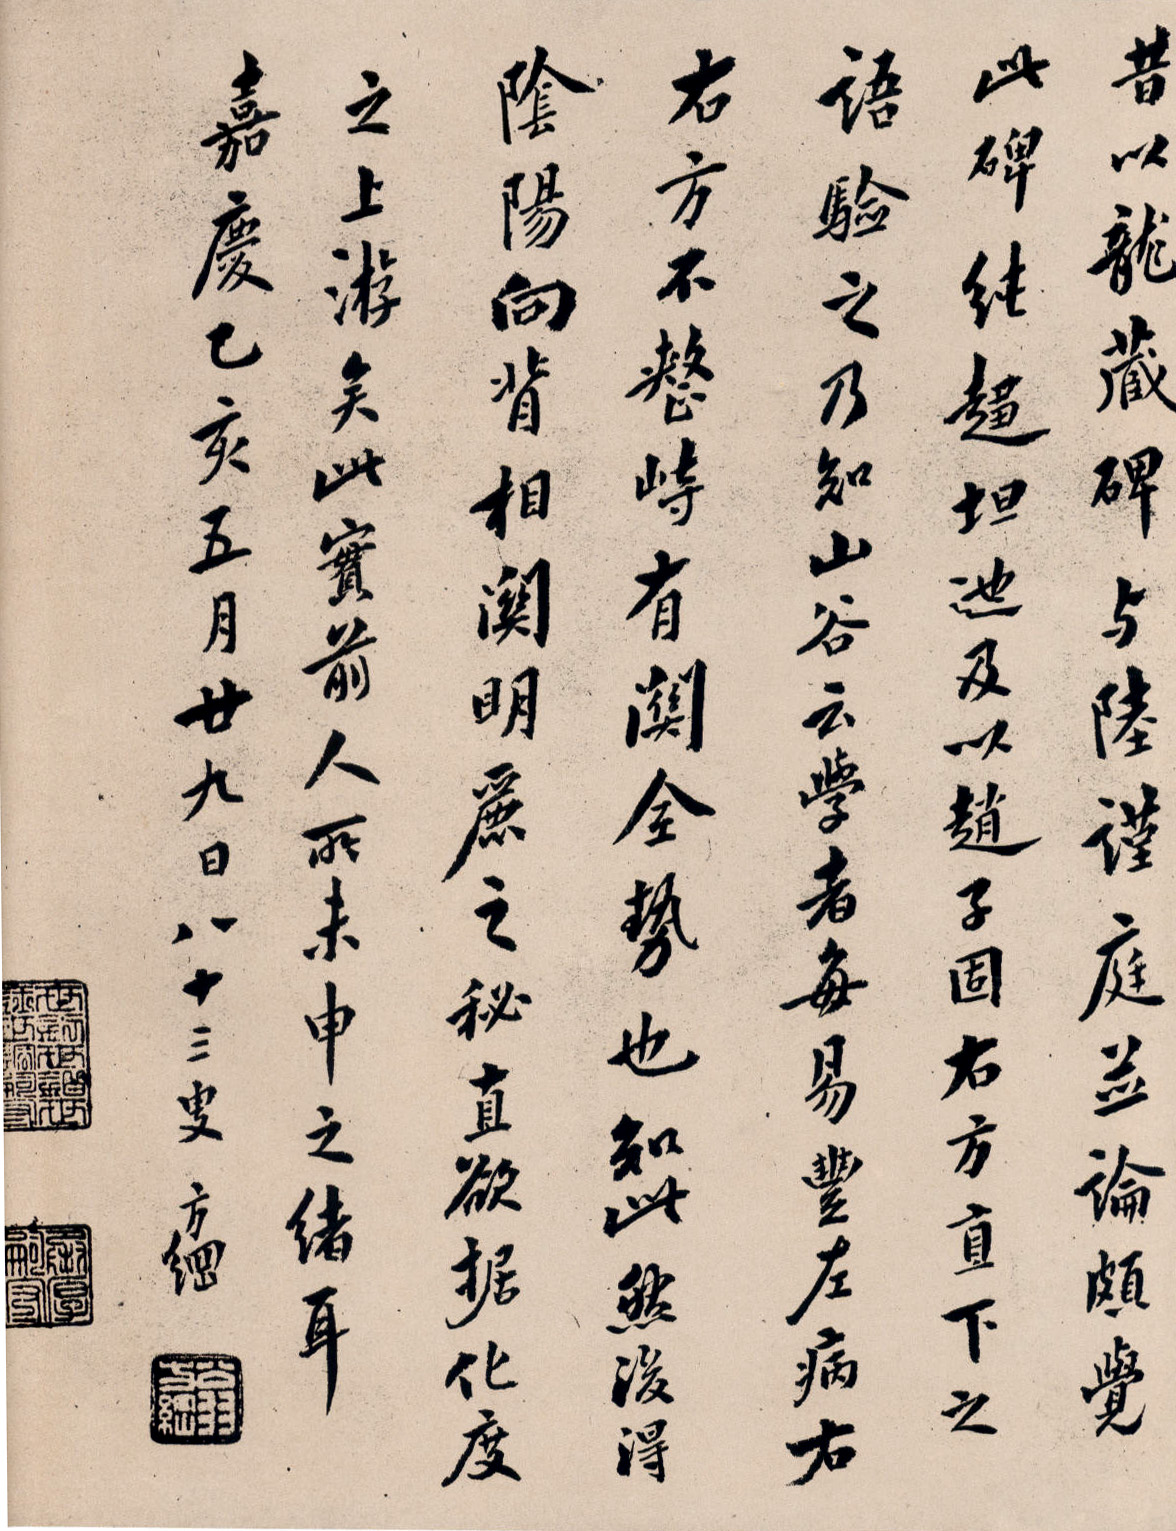 昔以龍藏碑与陸謹庭並論頗覺
此碑純趨坦迆及以趙子固右方直下之
語驗之乃知山谷云學者每易豐左病右
右方不整峙有關全勢也如此然後得
陰陽向背相關明麗之秘直欲据化度
之上游矣此實前人所未申之緒耳
嘉慶乙亥五月廿九日八十三叟方綱
翁方綱